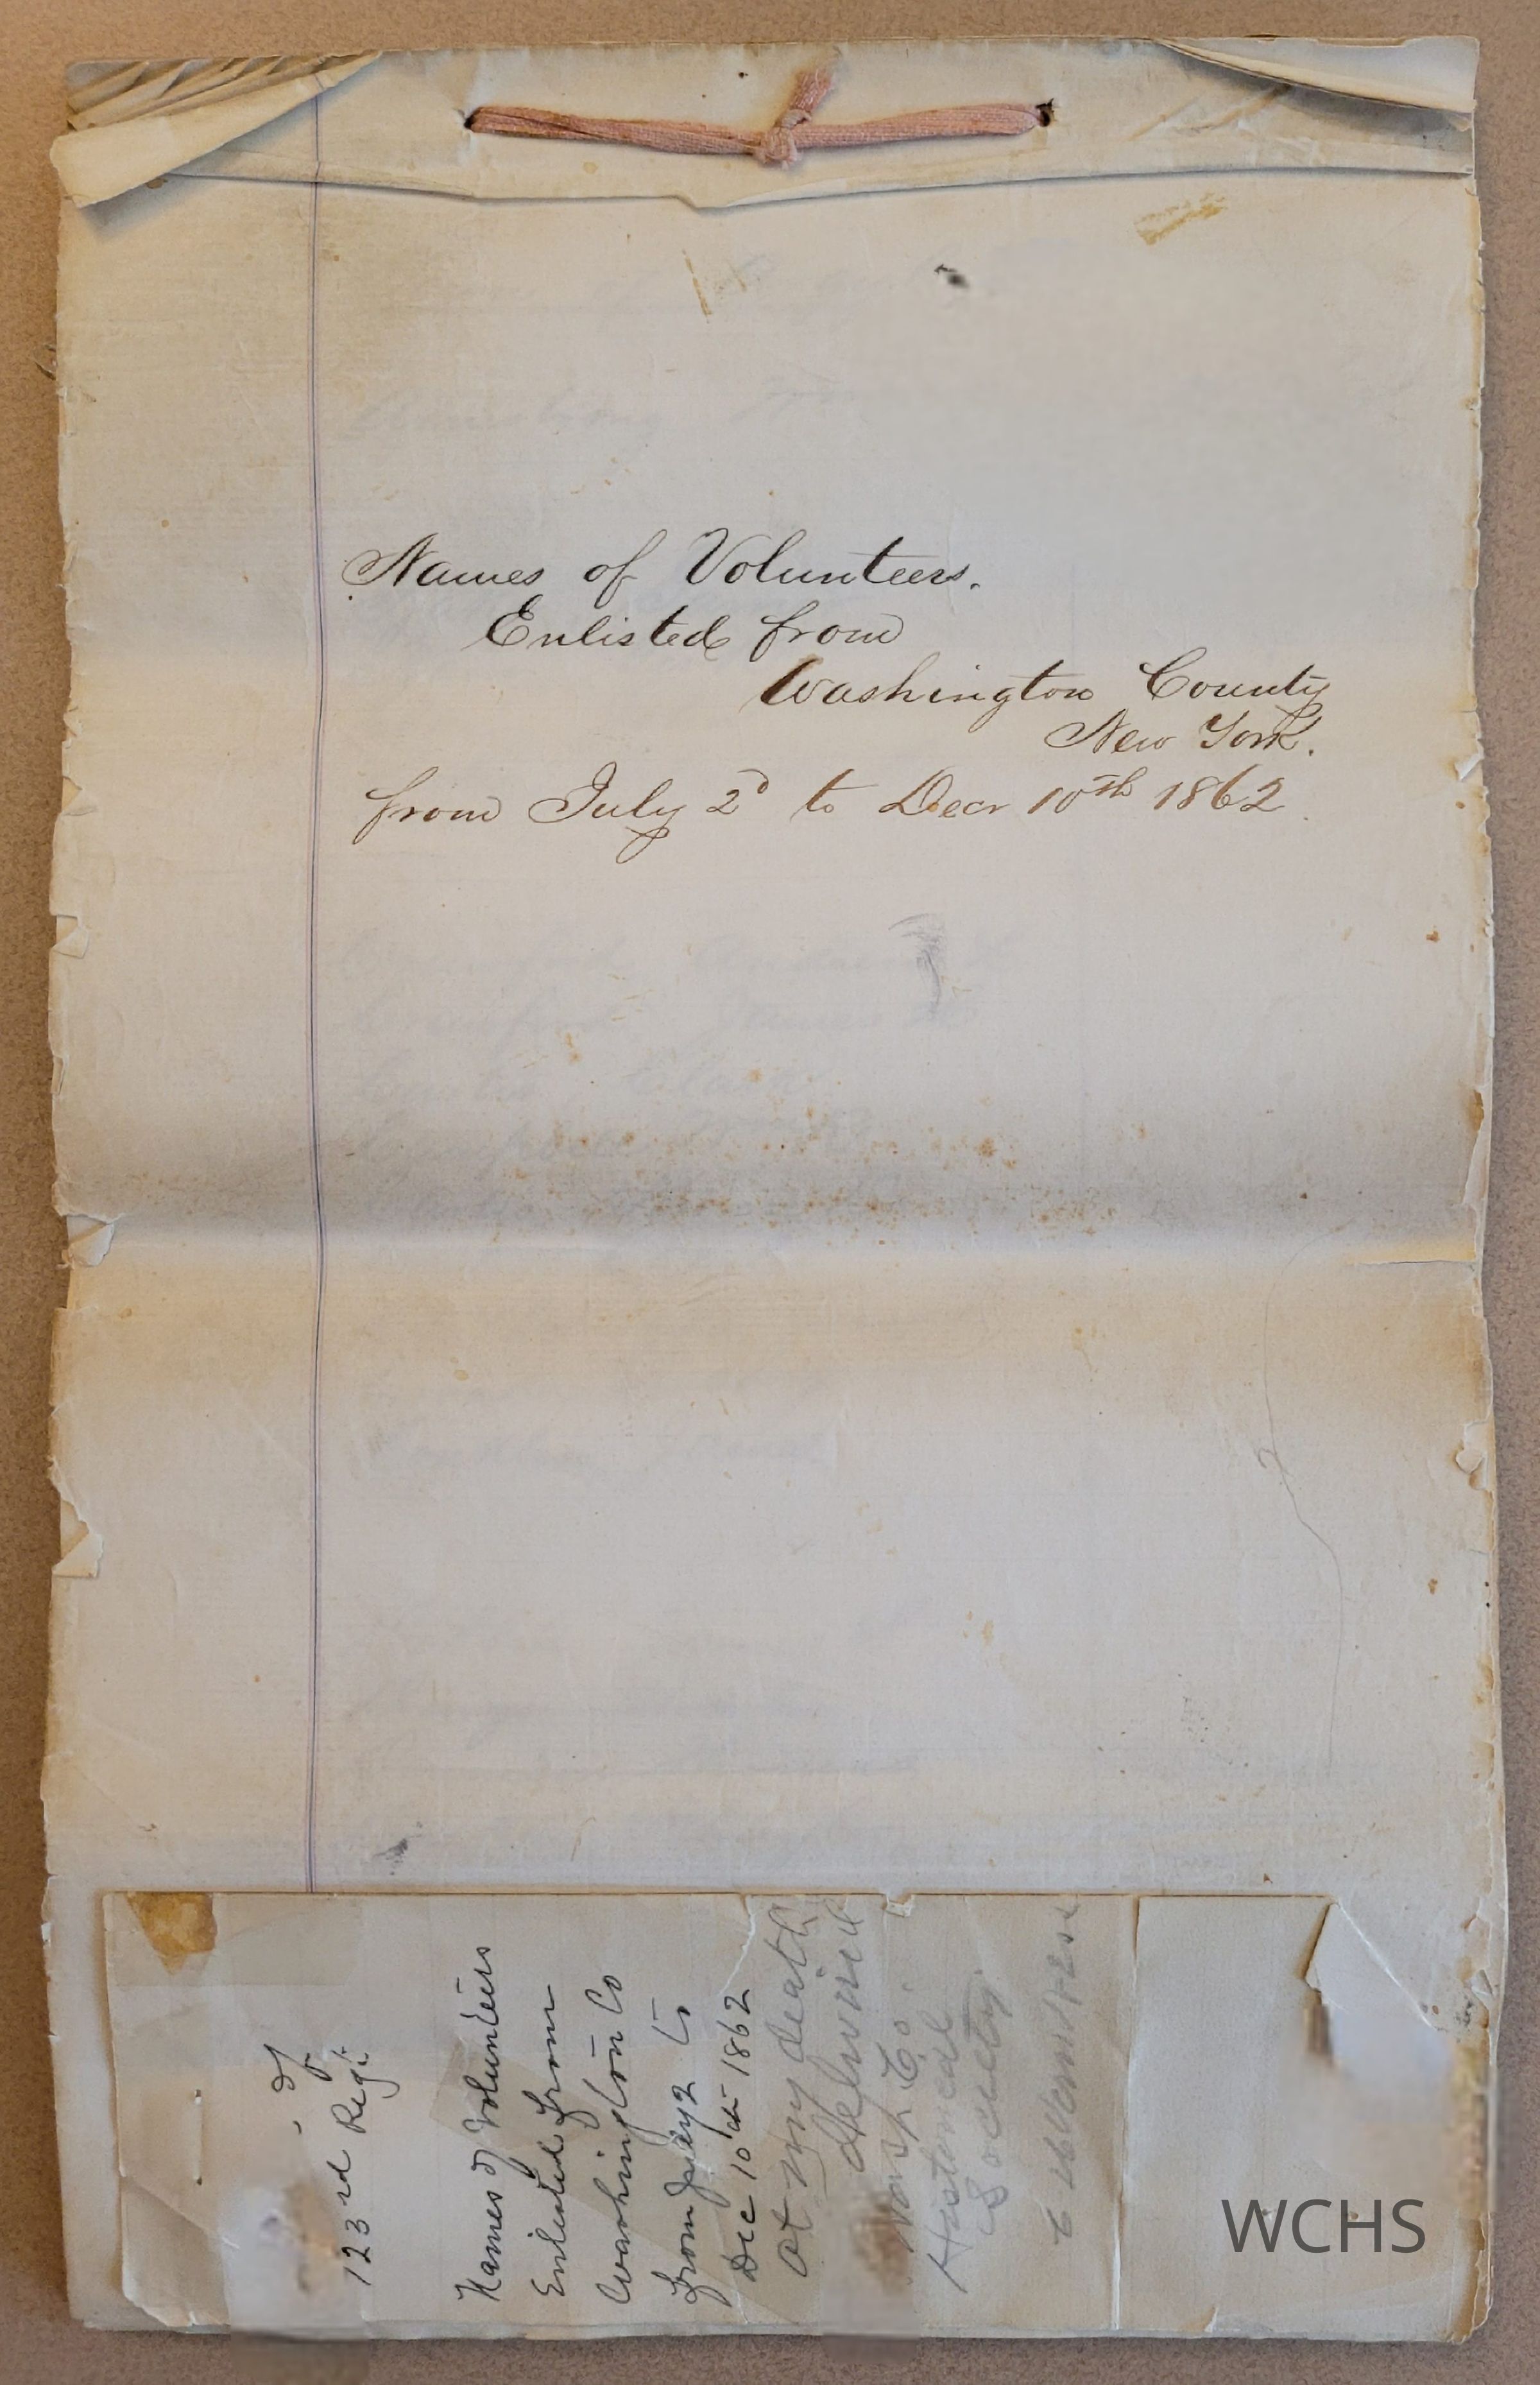 Names of Volunteers.
Enlisted from
Washington County
New York.
from July 2d to Decr 10th 1862
of
123rd Regt
Names of Volunteers
Enlisted from
Washington Co
from July 2 to
Dec 10th 1862
at my death
Wash Co.
Historical
Society.
WCHS